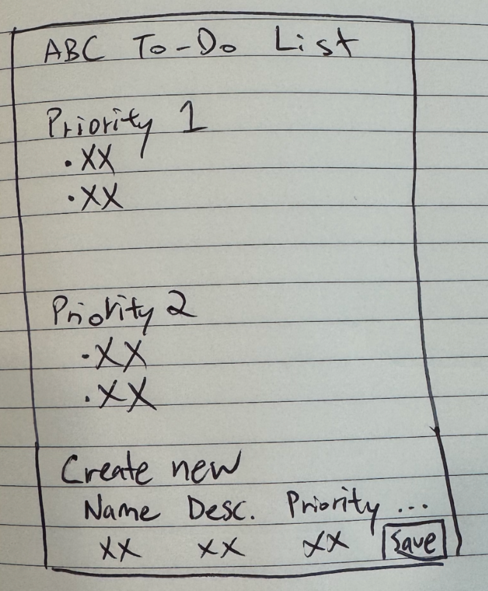 ABC To-Do List
Priority 1
• XX
• XX
Priority 2
• XX
• XX
Create new
Name Desc. Priority ...
XX XX XX Save